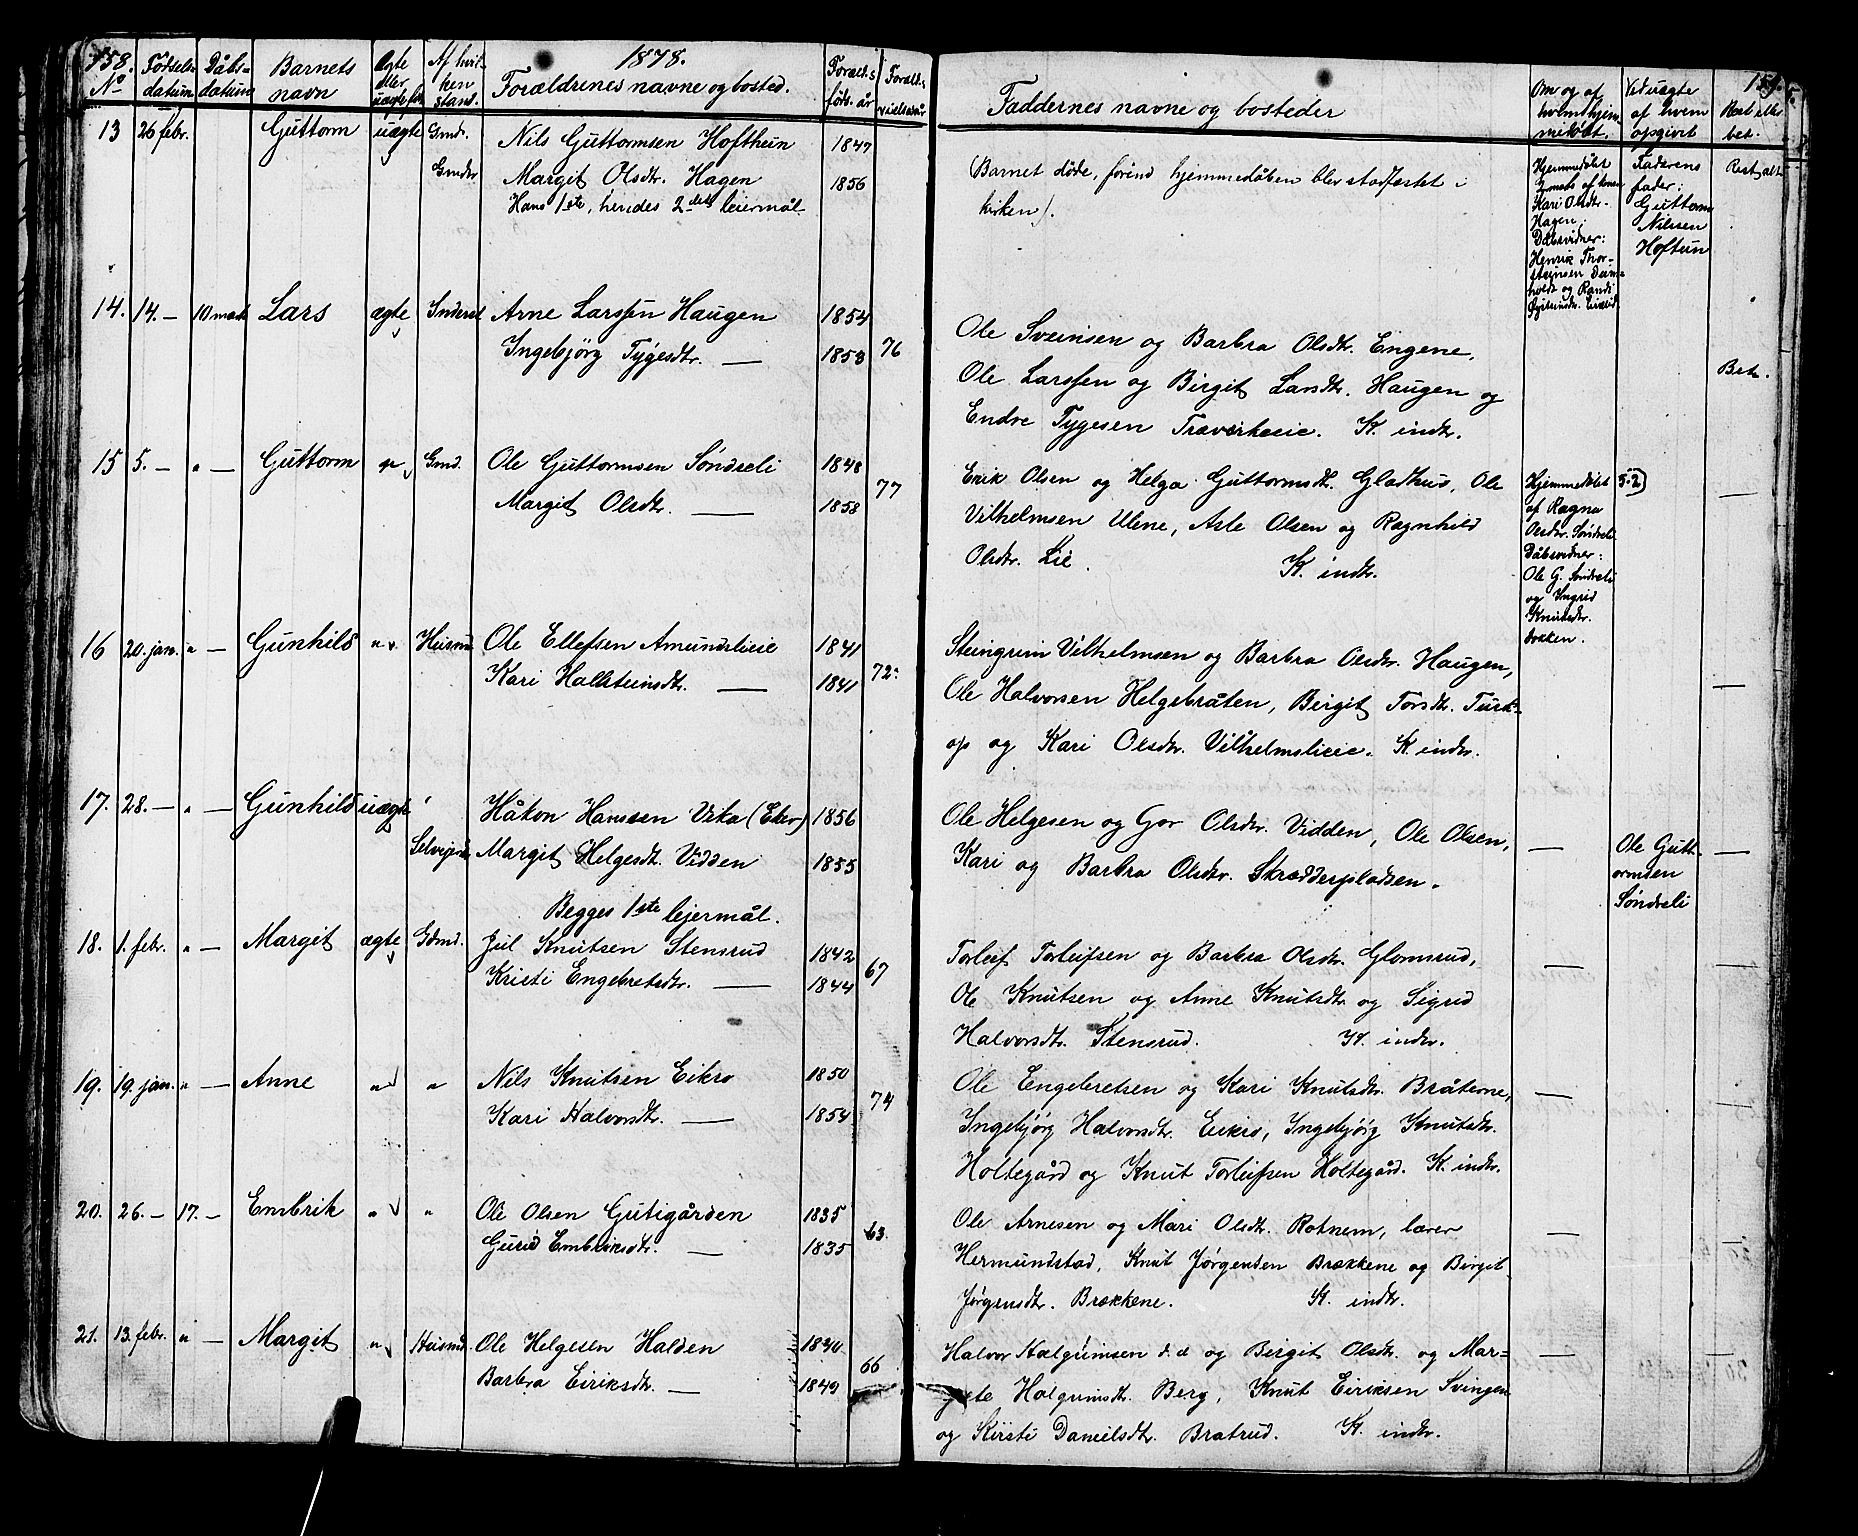 158.
1878.
159.
No
Fødsels-
datum
Dåbs-
datum
Barnets
navn
Ægte
eller
uægte
Af hvil-
ken
stand.
Forældrenes navne og bosted.
Foræld.s
føds. år
Foræld.s
vielsesår
Faddernes navne og bosteder
Om og af
hvem hjem-
medøbt.
Ved uægte
af hvem
opgivet
Rest eller
bet.
13 26 febr. Guttorm uægte Gmd. Nils Guttormsen Hofthun 1847
Gmdr Margit Olsdtr. Hagen 1856
Hans 1ste, hendes 2det leiermål
(Barnet døde, førend hjemmedåben blev stadfæstet i
kirken).
Hjemmedøbt
af konen
Kari Olsdtr.
Hagen.
Dåbsvidner:
Henrik Thor-
steinsen Dam-
holdt og Randi
Faderens
fader:
Guttorm
Nilssen
Hoftun
Rest alt
14. 14. — 10 marts Lars ægte Inderst Arne Larssen Haugen 1854
Ingebjørg Tygesdtr. — 1853 76
Ole Sveinsen og Barbra Olsdtr. Engene,
Ole Larssen og Birgit Larsdtr. Haugen og
Endre Tygesen Traverkeie. K. indtr.
Bet.
15 5. — " — Guttorm Gmd. Ole Guttormsen Søndreli 1848
Margit Olsdtr. — 1858 77
Erik Olsen og Helga Guttormsdtr. Gladhus, Ole
Vilhelmsen Ulene, Asle Olsen og Ragnhild
Olsdtr. Lie. K. indtr.
Hjemmedøbt
af Ragna
Olsdtr. Søndreli
Dåbsvidner:
Ole G. Søndreli
og Ingrid
Knutsdtr.
—
16 20. jan. " — Gunhild " Husmd Ole Ellefsen Amundslieie 1841
Kari Hallsteinsdtr. — 1841 72
Steingrim Vilhelmsen og Barbra Olsdtr. Haugen,
Ole Halvorsen Helgebråten, Birgit Torsdtr. Turk-
op og Kari Olsdtr. Vilhelmslieie. K. indtr.
—
17. 28. — " — Gunhild uægte Håkon Hanssen Vika (Elev) 1856
Selvejerdtr Margit Helgesdtr. Vidden 1855
Begges 1ste lejermål.
Ole Helgesen og Gor Olsdtr. Vidden, Ole Olsen,
Kari og Barbra Olsdtr. Skrædderpladsen.
—
Ole Gutt-
ormsen
Søndreli
—
18. 1. febr. " — Margit ægte Gdmd. Jul Knutsen Stensrud 1842
Kristi Engebretsdtr. — 1844 67
Torleif Torleifsen og Barbra Olsdtr. Glomsrud,
Ole Knutsen og Anne Knutsdtr og Sigrid
Halvorsdtr. Stensrud. K. indtr.
—
19. 19. jan. " — Anne " " Nils Knutsen Eikro 1850
Kari Halvorsdtr. — 1854 74
Ole Engebretsen og Kari Knutsdtr. Bråterne,
Ingebjørg Halvorsdtr. Eikro, Ingebjørg Knutsdtr.
Holtegård og Knut Torleifsen Holtegård. K. indtr.
—
20. 26. — 17. — Embrik " " Ole Olsen Gutigården 1835
Gurid Embriksdtr. — 1835 63.
Ole Arnesen og Mari Olsdtr. Rotnem, lærer
Hermundstad, Knut Jørgensen Brækkene og Birgit
Jørgensdtr. Brækkene. K. indtr.
—
21. 13. febr. " — Margit " Husmd. Ole Helgesen Halden
Barbra Eiriksdtr. — 1849 66
Halvor Halgrimsen og Birgit Olsdtr. og Mar-
gete Halgrimsdtr. Berg, Knut Eiriksen Svingen
og Kirsti Danielsdtr. Bratrud. K. indtr.
—